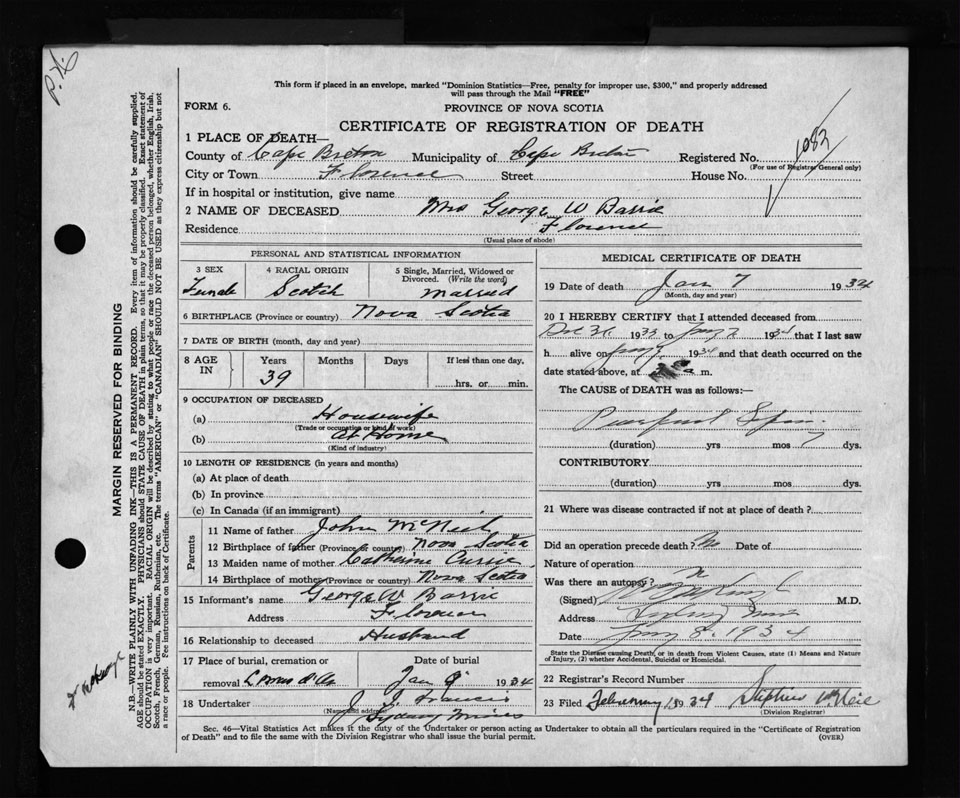 P.H.
This form if placed in an envelope, marked "Dominion Statistics—Free, penalty for improper use, $300," and properly addressed
will pass through the Mail "FREE"
FORM 6.
PROVINCE OF NOVA SCOTIA
CERTIFICATE OF REGISTRATION OF DEATH
1 PLACE OF DEATH—
County of Cape Breton Municipality of Cape Breton Registered No. 1082
(For use of Registrar General only)
City or Town Florence Street House No.
If in hospital or institution, give name
2 NAME OF DECEASED Mrs George W Barrie
Residence Florence
(Usual place of abode)
PERSONAL AND STATISTICAL INFORMATION
3 SEX Female
4 RACIAL ORIGIN Scotch
5 Single, Married, Widowed or Divorced. (Write the word) Married
6 BIRTHPLACE (Province or country) Nova Scotia
7 DATE OF BIRTH (month, day and year)
8 AGE IN Years 39 Months Days If less than one day. hrs. or min.
9 OCCUPATION OF DECEASED
(a) Housewife
(Trade or occupation or kind of work)
(b) at Home
(Kind of industry)
10 LENGTH OF RESIDENCE (in years and months)
(a) At place of death
(b) In province
(c) In Canada (if an immigrant)
Parents
11 Name of father John McNeil
12 Birthplace of father (Province or country) Nova Scotia
13 Maiden name of mother Catharine Currie
14 Birthplace of mother (Province or country) Nova Scotia
15 Informant's name George W Barrie
Address Florence
16 Relationship to deceased Husband
17 Place of burial, cremation or removal Date of burial Jan 9 1934
18 Undertaker J. J. Francis
(Name and address) Sydney Mines
MEDICAL CERTIFICATE OF DEATH
19 Date of death Jan 7 1934
(Month, day and year)
20 I HEREBY CERTIFY that I attended deceased from
Dec 31 1933 to Jany 7 1934 that I last saw
h alive on Jany 1934 and that death occurred on the
date stated above, at a m.
The CAUSE of DEATH was as follows:—
Puerperal Sepsis
(duration) yrs mos 7 dys.
CONTRIBUTORY
(duration) yrs mos dys.
21 Where was disease contracted if not at place of death?
Did an operation precede death? No Date of
Nature of operation
Was there an autopsy? N
(Signed) M.D.
Address Sydney Mines
Date Jany 8. 1934
State the Disease causing Death, or in death from Violent Causes, state (1) Means and Nature
of Injury, (2) whether Accidental, Suicidal or Homicidal.
22 Registrar's Record Number
23 Filed February 1934 Stephen McNeil
(Division Registrar)
Sec. 46—Vital Statistics Act makes it the duty of the Undertaker or person acting as Undertaker to obtain all the particulars required in the "Certificate of Registration
of Death" and to file the same with the Division Registrar who shall issue the burial permit. (OVER)
MARGIN RESERVED FOR BINDING
N.B.—WRITE PLAINLY WITH UNFADING INK—THIS IS A PERMANENT RECORD. Every item of information should be carefully supplied.
AGE should be stated EXACTLY. PHYSICIANS should STATE CAUSE OF DEATH in plain terms, so that it may be properly classified. Exact statement of
OCCUPATION is very important. RACIAL ORIGIN will be described by stating to what people or race the deceased person belonged, whether English, Irish,
Scotch, French, German, Russian, Ruthenian, etc. The terms "AMERICAN" or "CANADIAN" SHOULD NOT BE USED as they express citizenship but not
a race or people. Fee instructions on back of Certificate.